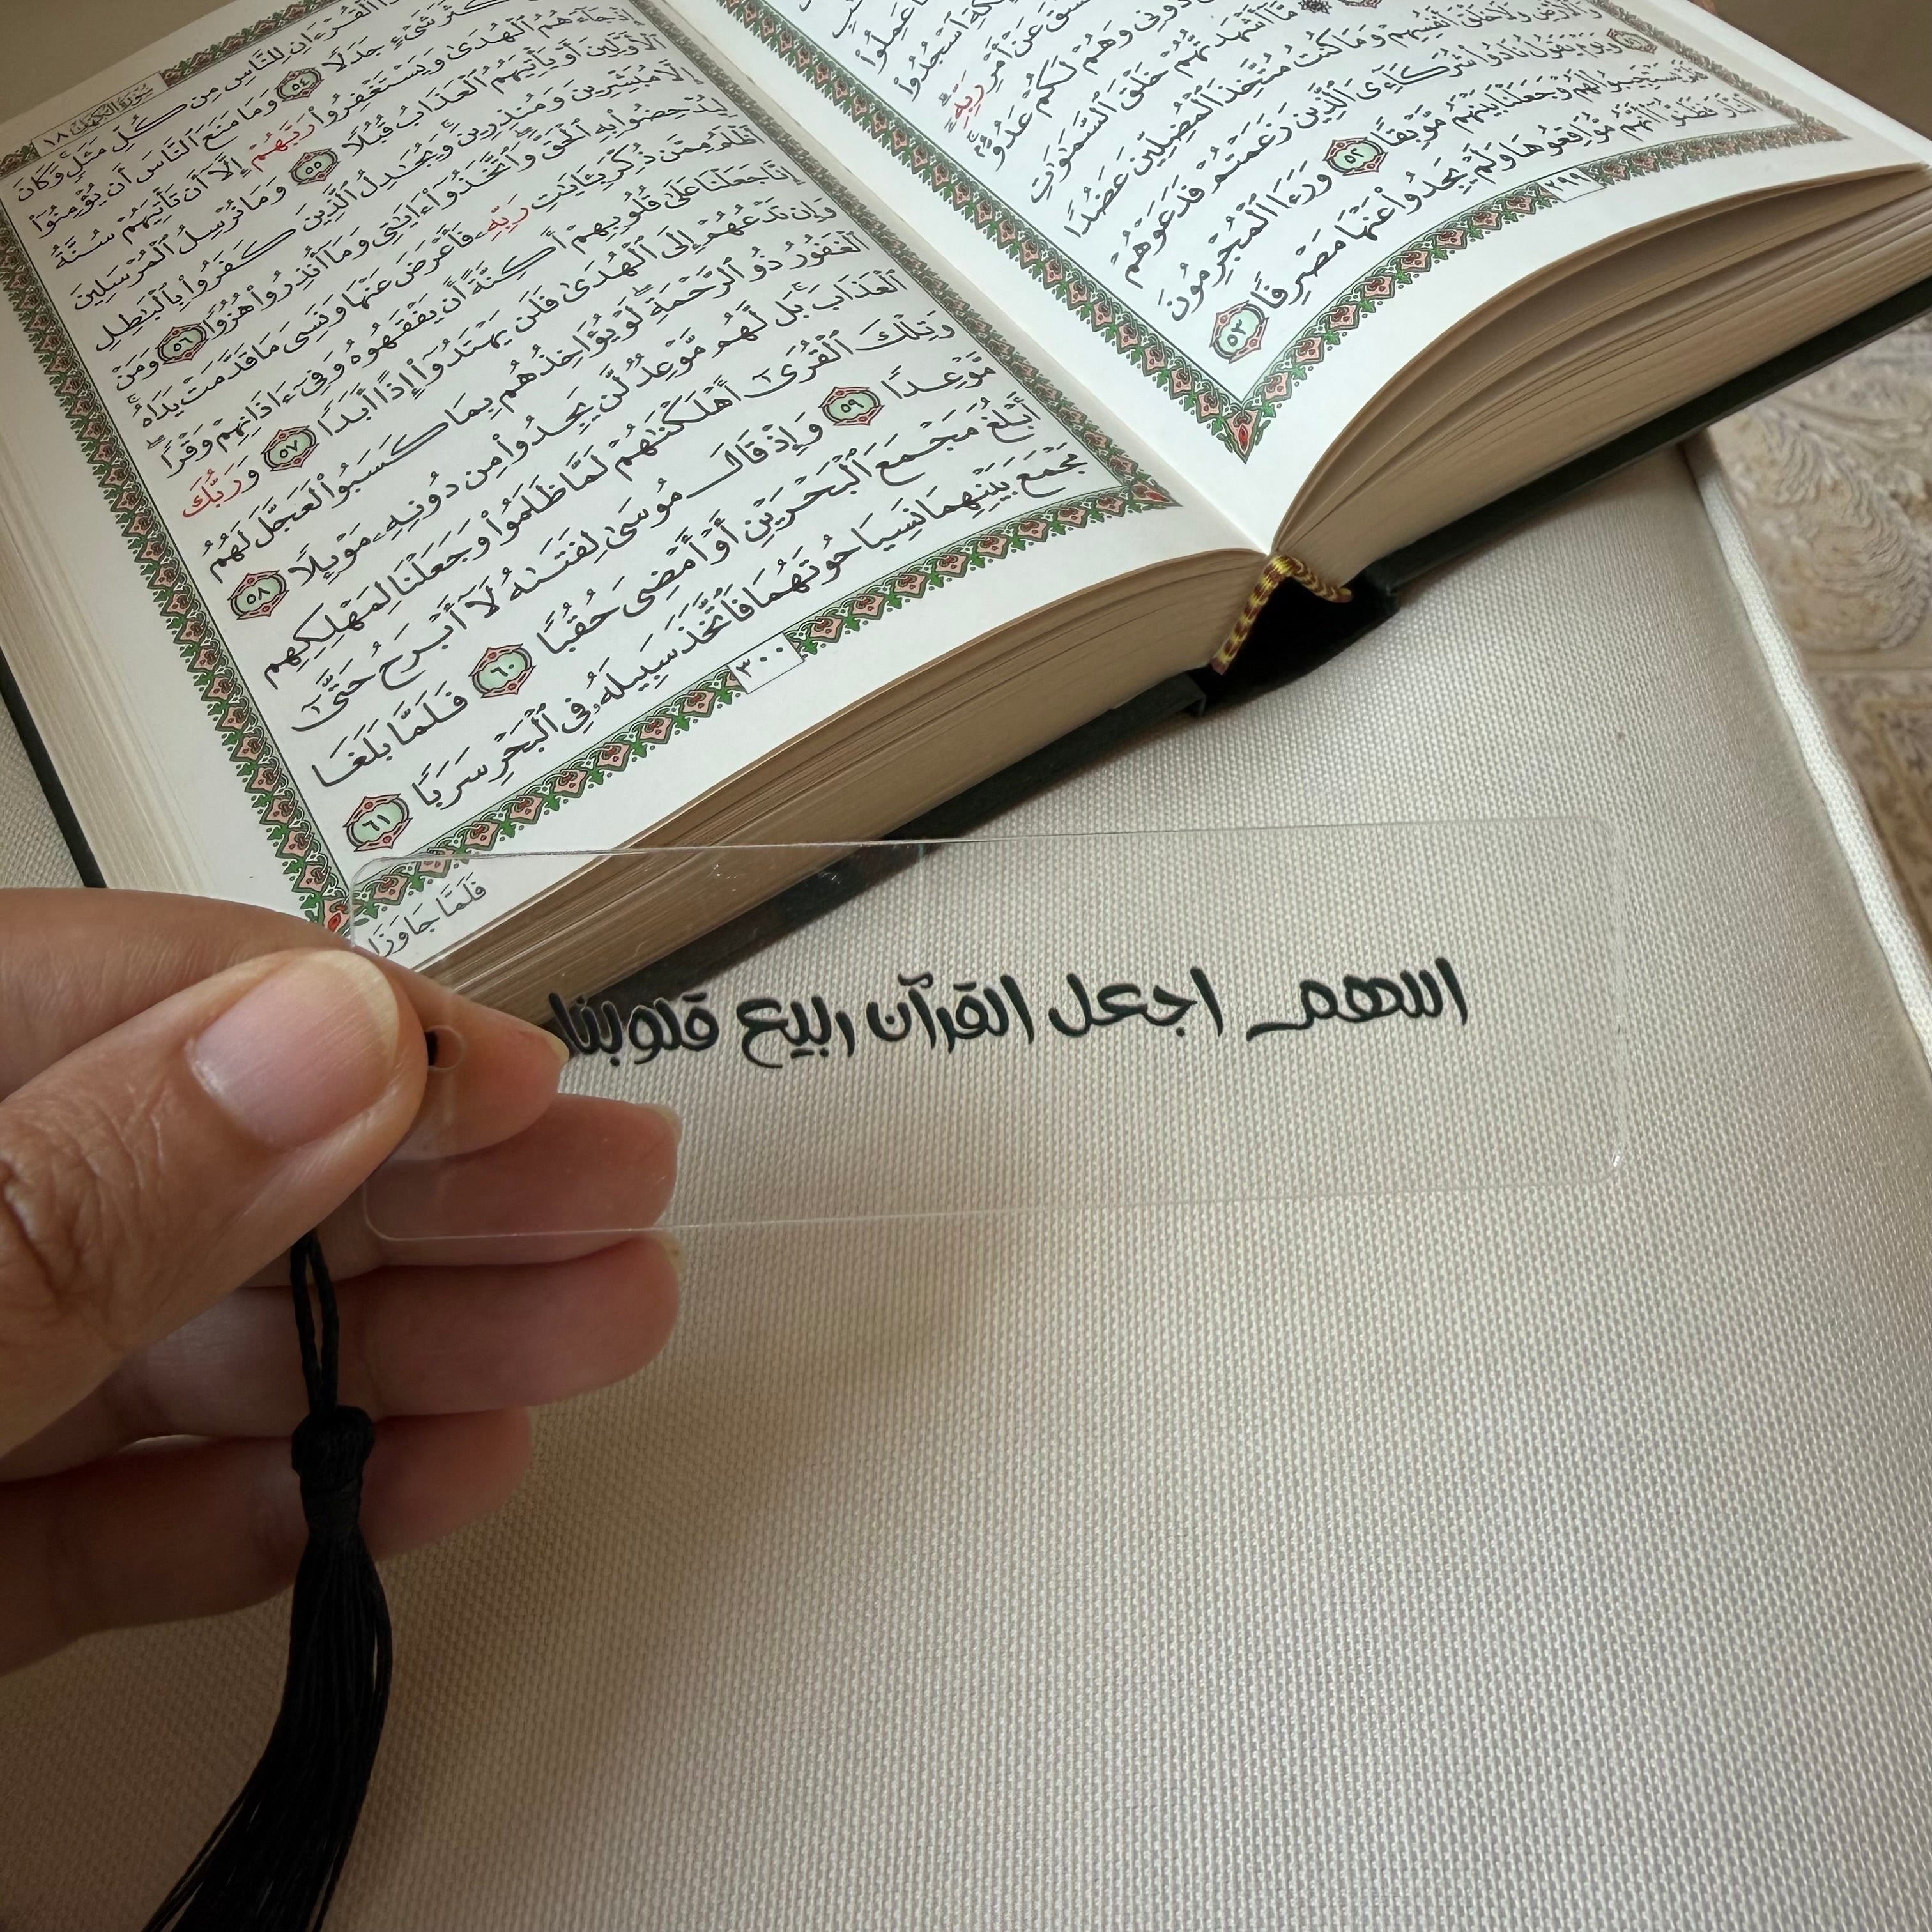 عَمِلُوا۟
ٱسْجُدُوا۟
عَنْ أَمْرِ رَبِّهِۦٓ
دُونِى وَهُمْ لَكُمْ عَدُوٌّۢ
مَّآ أَشْهَدتُّهُمْ خَلْقَ ٱلسَّمَٰوَٰتِ
وَٱلْأَرْضِ وَلَا خَلْقَ أَنفُسِهِمْ وَمَا كُنتُ مُتَّخِذَ ٱلْمُضِلِّينَ عَضُدًا
وَيَوْمَ يَقُولُ نَادُوا۟ شُرَكَآءِىَ ٱلَّذِينَ زَعَمْتُمْ فَدَعَوْهُمْ
فَلَمْ يَسْتَجِيبُوا۟ لَهُمْ وَجَعَلْنَا بَيْنَهُم مَّوْبِقًا ٥٢ وَرَءَا ٱلْمُجْرِمُونَ
ٱلنَّارَ فَظَنُّوٓا۟ أَنَّهُم مُّوَاقِعُوهَا وَلَمْ يَجِدُوا۟ عَنْهَا مَصْرِفًا ٥٣
٢٩٩
سُورَةُ الكَهْفِ ١٨
ٱلْقُرْءَانِ لِلنَّاسِ مِن كُلِّ مَثَلٍ وَكَانَ
شَىْءٍ جَدَلًا ٥٤ وَمَا مَنَعَ ٱلنَّاسَ أَن يُؤْمِنُوٓا۟
إِذْ جَآءَهُمُ ٱلْهُدَىٰ وَيَسْتَغْفِرُوا۟ رَبَّهُمْ إِلَّآ أَن تَأْتِيَهُمْ سُنَّةُ
ٱلْأَوَّلِينَ أَوْ يَأْتِيَهُمُ ٱلْعَذَابُ قُبُلًا ٥٥ وَمَا نُرْسِلُ ٱلْمُرْسَلِينَ
إِلَّا مُبَشِّرِينَ وَمُنذِرِينَ وَيُجَٰدِلُ ٱلَّذِينَ كَفَرُوا۟ بِٱلْبَٰطِلِ
لِيُدْحِضُوا۟ بِهِ ٱلْحَقَّ وَٱتَّخَذُوٓا۟ ءَايَٰتِى وَمَآ أُنذِرُوا۟ هُزُوًا ٥٦ وَمَنْ
أَظْلَمُ مِمَّن ذُكِّرَ بِـَٔايَٰتِ رَبِّهِۦ فَأَعْرَضَ عَنْهَا وَنَسِىَ مَا قَدَّمَتْ يَدَاهُ
إِنَّا جَعَلْنَا عَلَىٰ قُلُوبِهِمْ أَكِنَّةً أَن يَفْقَهُوهُ وَفِىٓ ءَاذَانِهِمْ وَقْرًا
وَإِن تَدْعُهُمْ إِلَى ٱلْهُدَىٰ فَلَن يَهْتَدُوٓا۟ إِذًا أَبَدًا ٥٧ وَرَبُّكَ
ٱلْغَفُورُ ذُو ٱلرَّحْمَةِ لَوْ يُؤَاخِذُهُم بِمَا كَسَبُوا۟ لَعَجَّلَ لَهُمُ
ٱلْعَذَابَ بَل لَّهُم مَّوْعِدٌ لَّن يَجِدُوا۟ مِن دُونِهِۦ مَوْئِلًا ٥٨
وَتِلْكَ ٱلْقُرَىٰٓ أَهْلَكْنَٰهُمْ لَمَّا ظَلَمُوا۟ وَجَعَلْنَا لِمَهْلِكِهِم
مَّوْعِدًا ٥٩ وَإِذْ قَالَ مُوسَىٰ لِفَتَىٰهُ لَآ أَبْرَحُ حَتَّىٰٓ
أَبْلُغَ مَجْمَعَ ٱلْبَحْرَيْنِ أَوْ أَمْضِىَ حُقُبًا ٦٠ فَلَمَّا بَلَغَا
مَجْمَعَ بَيْنِهِمَا نَسِيَا حُوتَهُمَا فَٱتَّخَذَ سَبِيلَهُۥ فِى ٱلْبَحْرِ سَرَبًا ٦١
٣٠٠
فَلَمَّا جَاوَزَا
اللهم اجعل القرآن ربيع قلوبنا